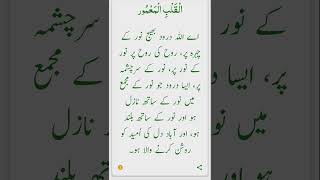 الْقَلْبِ الْمَعْمُورِ
اے اللہ درود بھیج نور کے
چہرہ پر، روح کی روح پر نور
کے نور پر، نور کے سرچشمہ
پر، ایسا درود جو نور کے مجمع
میں نور کے ساتھ نازل
ہو اور نور کے ساتھ بلند
ہو، اور آباد دل کی اُمید کو
روشن کرنے والا ہو۔